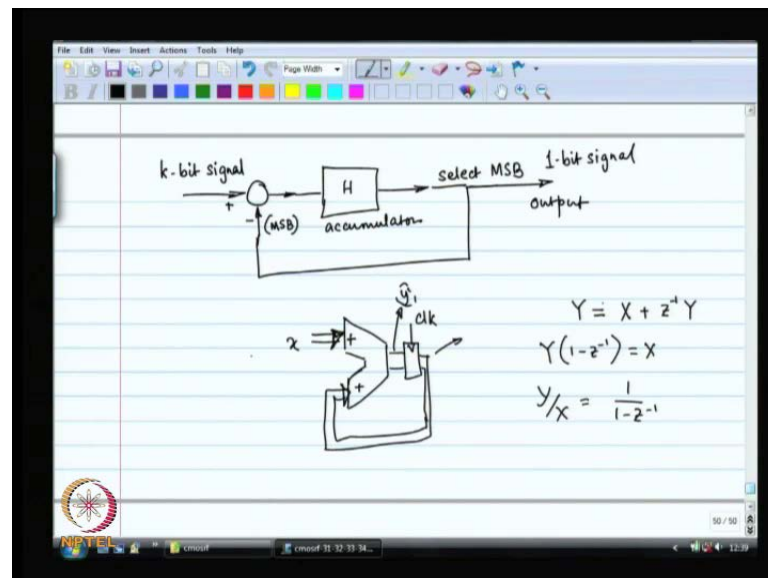 File Edit View Insert Actions Tools Help
Page Width
B I
k-bit signal
+
-
(MSB)
H
accumulator
select MSB
1-bit signal
output
x
+
+
clk
Y = X + z⁻¹ Y
Y(1-z⁻¹) = X
Y/X = 1/(1-z⁻¹)
50 / 50
NPTEL
cmosrf
cmosrf-31-32-33-34...
12:39